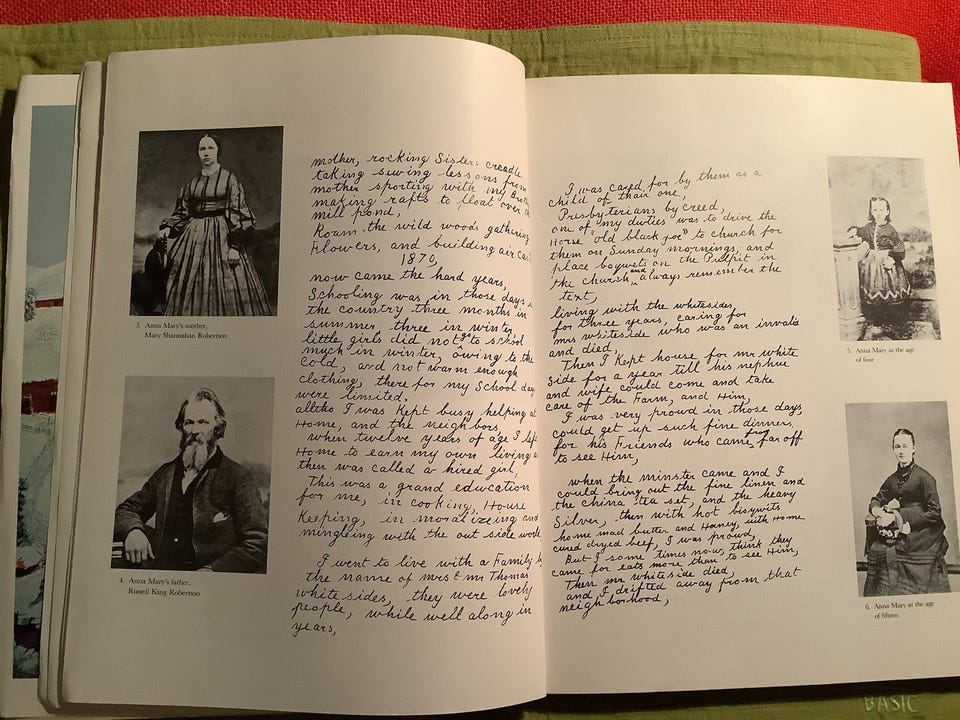 mother, rocking Sisters creadle
taking sewing lessons from
mother sporting with my Broth
making rafts to float over
mill pond,
Roam the wild woods gathering
Flowers, and building air cas
1870,
now came the hard years,
Schooling was in those days
the country three months in
summer, three in winter,
little girls did not go to school
much in winter, owing to the
cold, and not warm enough
clothing, there for my School day
were limited,
altho I was Kept busy helping at
Home, and the neighbors,
when twelve years of age I left
Home to earn my own living
then was called a hired girl,
This was a grand education
for me, in cooking, House
Keeping, in moralizeing and
mingleing with the out side world
I went to live with a Family by
the name of mrs & mr Thomas
whitesides, they were lovely
people, while well along in
years,
3. Anna Mary's mother,
Mary Shannahan Robertson
4. Anna Mary's father,
Russell King Robertson
I was cared for by them as a
child of thair one,
Presbyterians by creed,
one of my duties was to drive the
Horse "old black joe" to church for
them on Sunday mornings, and
place boquets on the Pulpit in
the church, and always remember the
text,
living with the whitesides,
for three years, careing for
mrs whiteside who was an invalid
and died
Then I Kept house for mr white
side for a year till his nephue
and wife could come and take
care of the Farm, and Him,
I was very proud in those days,
could get up such fine dinners,
for his Friends who came from far off
to see Him,
when the minster came and I
could bring out the fine linen and
the china tea set, and the heavy
Silver, then with hot biscuits
home mad butter and Honey, with Home
cured dryed beef, I was proud,
But I some times now, think they
came for eats more than to see Him,
Then mr whiteside died,
and I drifted away from that
neighborhood,
5. Anna Mary at the age
of four
6. Anna Mary at the age
of fifteen
BASIC